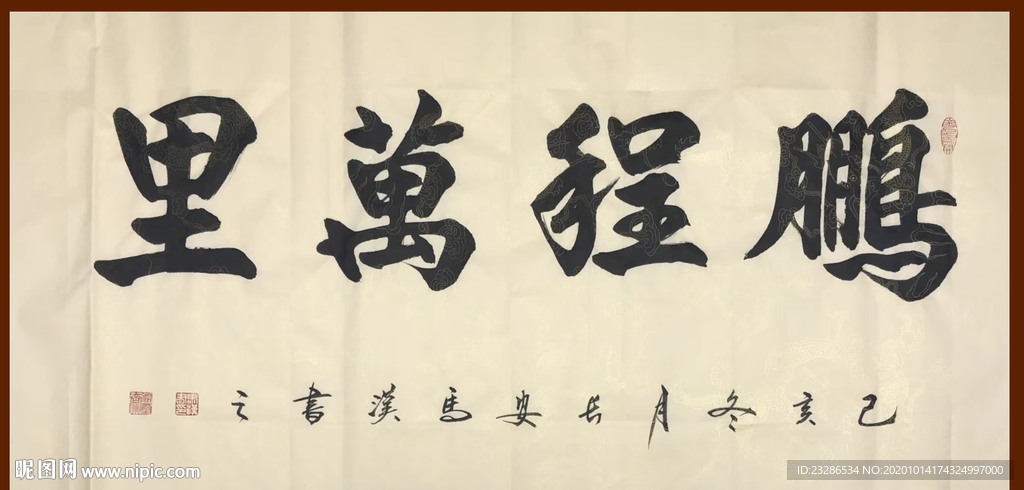 鵬程萬里
己亥冬月长安馬漢書之
昵图网 www.nipic.com
ID:23286534 NO:20201014174324997000